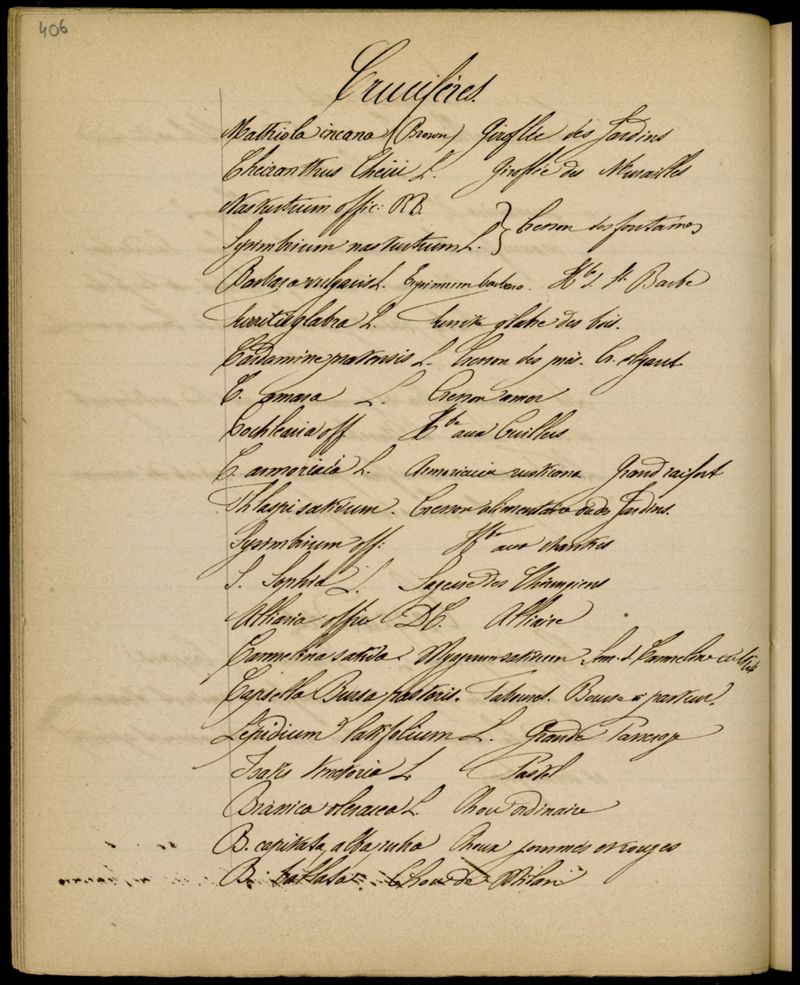 406
Crucifères
Mathiola incana (Brown) Giroflée des Jardins
Cheiranthus Cheiri L. Giroflée des Murailles
Nasturtium offic: RB.
Sysimbrium nasturtium L. } Cresson des fontaines
Barbarea vulgaris L. Erysimum barbarea. Hbe d. Ste Barbe
Turritis glabra L. Turrite glabre des bois.
Cardamine pratensis L. Cresson des prés. Cr. élégant
C. amara L. Cresson amer
Cochlearia off. Hbe aux Cuillers
C. armoriaca L. Armoriacia rusticana Grand raifort
Thlaspi sativum. Cresson alimentaire ou des Jardins.
Sysimbrium off: Hbe aux chantres
S. Sophia L. Sagesse des Chirurgiens
Alliaria offic DC. Alliaire
Cammelina sativa. Myagrum sativum Sem. d. Cammeline
Capsella Bursa pastoris. Tabouret. Bourse à pasteur.
Lepidium latifolium L. Grande Passerage
Isatis tinctoria L Pastel
Brassica oleracea L. Chou ordinaire
B. capitata, alba, rubra Choux pommés et rouges
B. bullata Chou de Milan